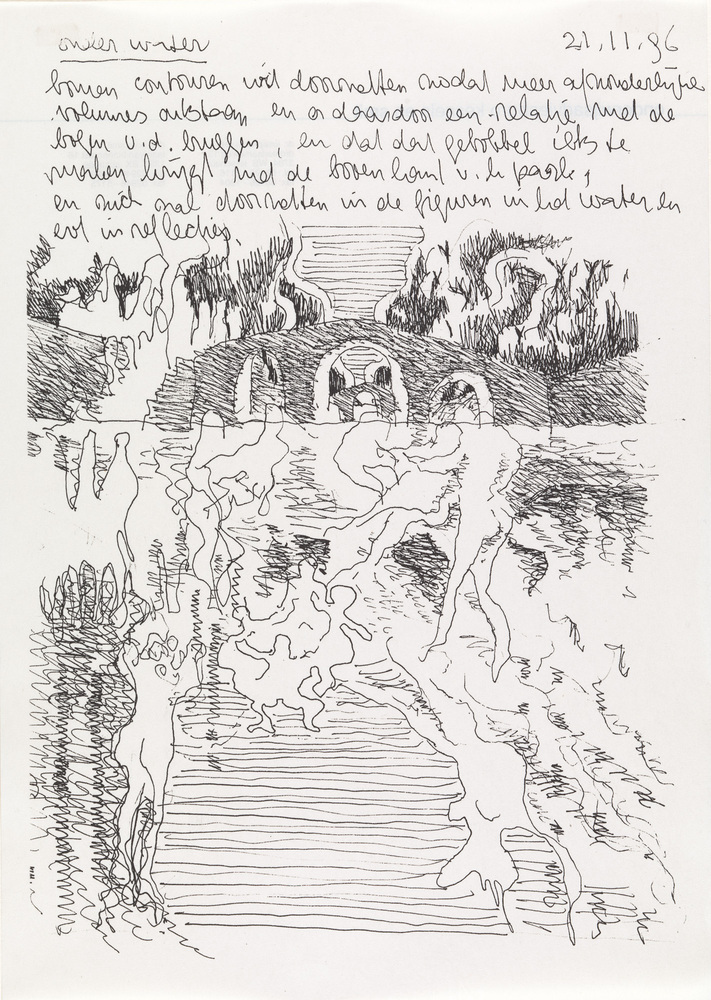 onder water 21.11.96
bomen contouren wit doorsnetten nodat meer afzonderlijke
volumes ontstaan en er daardoor een relatie met de
bogen v.d. bruggen, en dat dat gebobbel iets te
maken krijgt met de bovenkant v.
en met doorsnetten in de figuren in het water en
evt in reflecties.